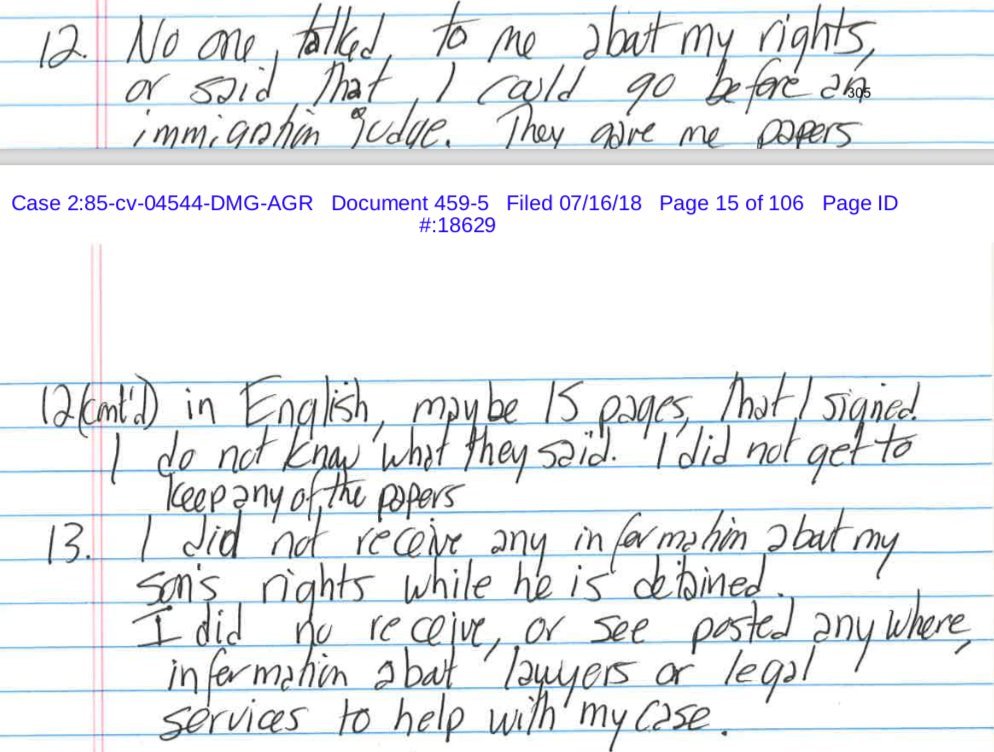 12. No one talked to me about my rights,
or said that I could go before an
305
immigration judge. They gave me papers
Case 2:85-cv-04544-DMG-AGR Document 459-5 Filed 07/16/18 Page 15 of 106 Page ID
#:18629
12 (cont'd) in English, maybe 15 pages, that I signed.
I do not know what they said. I did not get to
keep any of the papers
13. I did not receive any information about my
son's rights while he is detained.
I did no receive, or see posted anywhere,
information about lawyers or legal
services to help with my case.